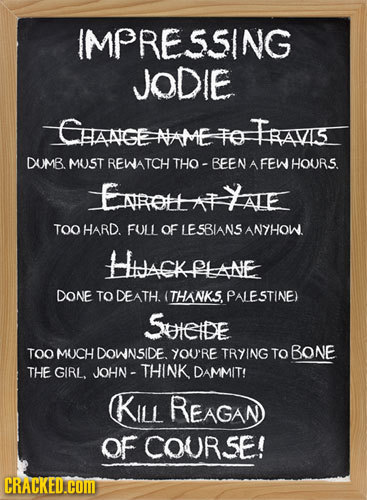 IMPRESSING
JODIE
CHANGE NAME TO TRAVIS
DUMB. MUST REWATCH THO - BEEN A FEW HOURS.
ENROLL AT YALE
TOO HARD. FULL OF LESBIANS ANYHOW.
HIJACK PLANE
DONE TO DEATH. (THANKS, PALESTINE)
SUICIDE
TOO MUCH DOWNSIDE. YOU'RE TRYING TO BONE
THE GIRL, JOHN - THINK, DAMMIT!
KILL REAGAN
OF COURSE!
CRACKED.COM